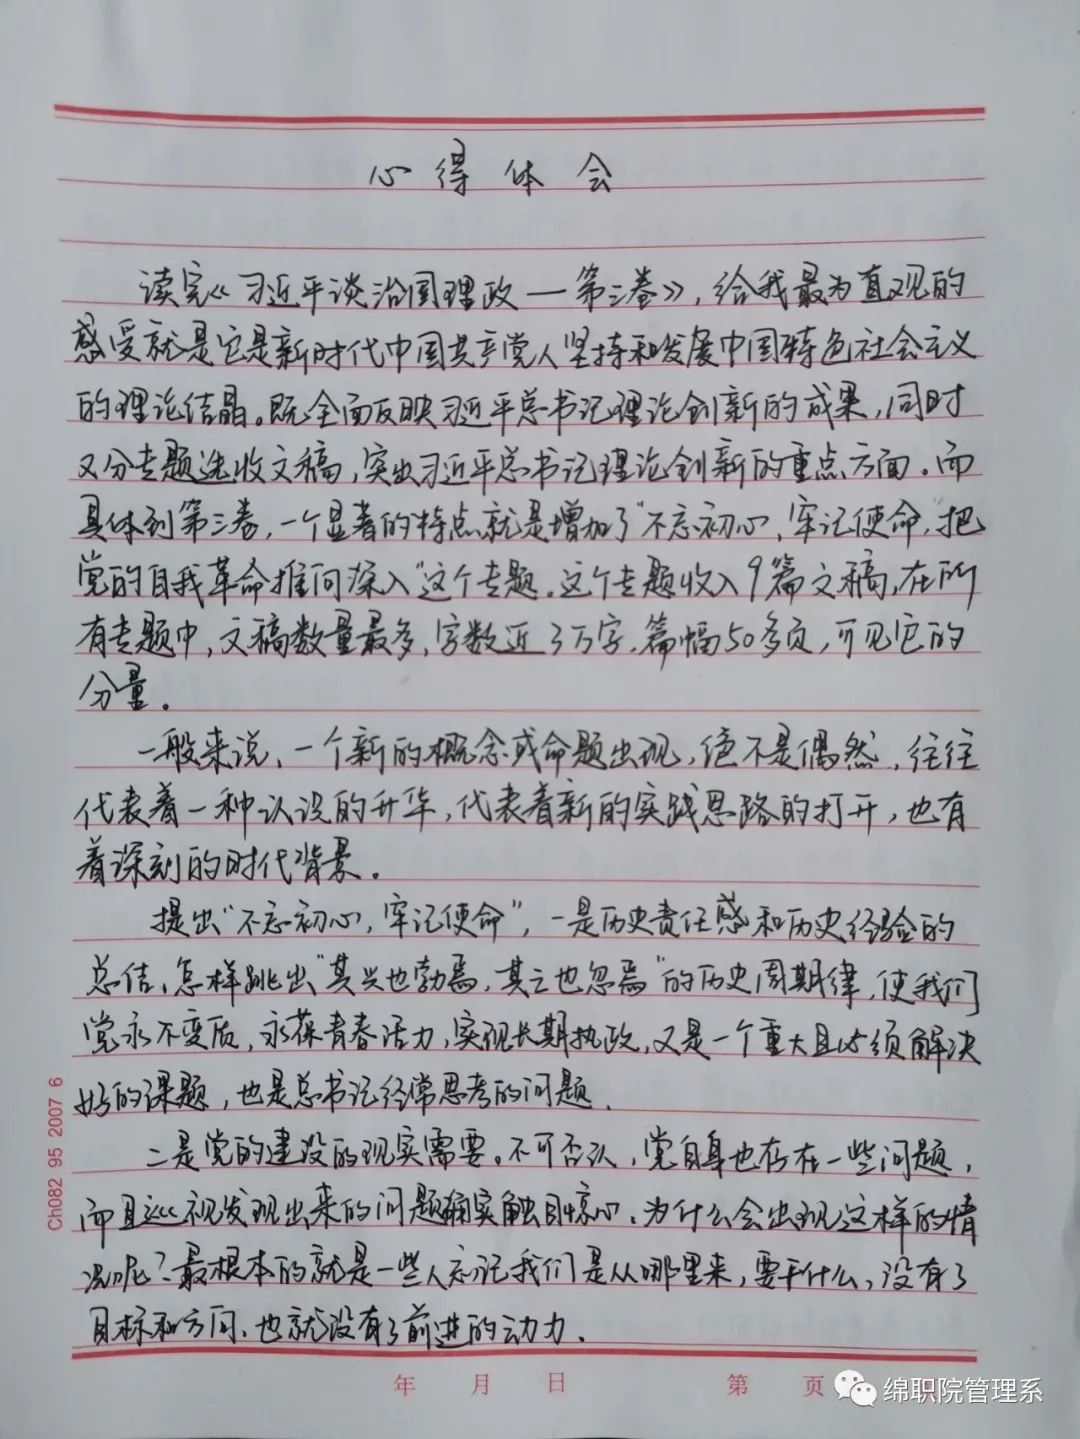 心得体会
读完《习近平谈治国理政—第三卷》，给我最为直观的
感受就是它是新时代中国共产党人坚持和发展中国特色社会主义
的理论结晶。既全面反映习近平总书记理论创新的成果，同时
又分专题选收文稿，突出习近平总书记理论创新的重点方面。而
具体到第三卷，一个显著的特点就是增加了“不忘初心，牢记使命，”把
党的自我革命推向深入”这个专题。这个专题收入9篇文稿，在所
有专题中，文稿数量最多，字数近3万字，篇幅50多页，可见它的
分量。
一般来说，一个新的概念或命题出现，绝不是偶然，往往
代表着一种认识的升华，代表着新的实践思路的打开，也有
着深刻的时代背景。
提出“不忘初心，牢记使命”，一是历史责任感和历史经验的
总结。怎样跳出“其兴也勃焉，其亡也忽焉”的历史周期律，使我们
党永不变质，永葆青春活力，实现长期执政，又是一个重大且必须解决
好的课题，也是总书记经常思考的问题。
二是党的建设的现实需要。不可否认，党自身也存在一些问题，
而且巡视发现出来的问题确实触目惊心。为什么会出现这样的情
况呢？最根本的就是一些人忘记我们是从哪里来，要干什么，没有了
目标和方向，也就没有了前进的动力。
Ch082 95 2007 6
年 月 日 第 页
绵职院管理系